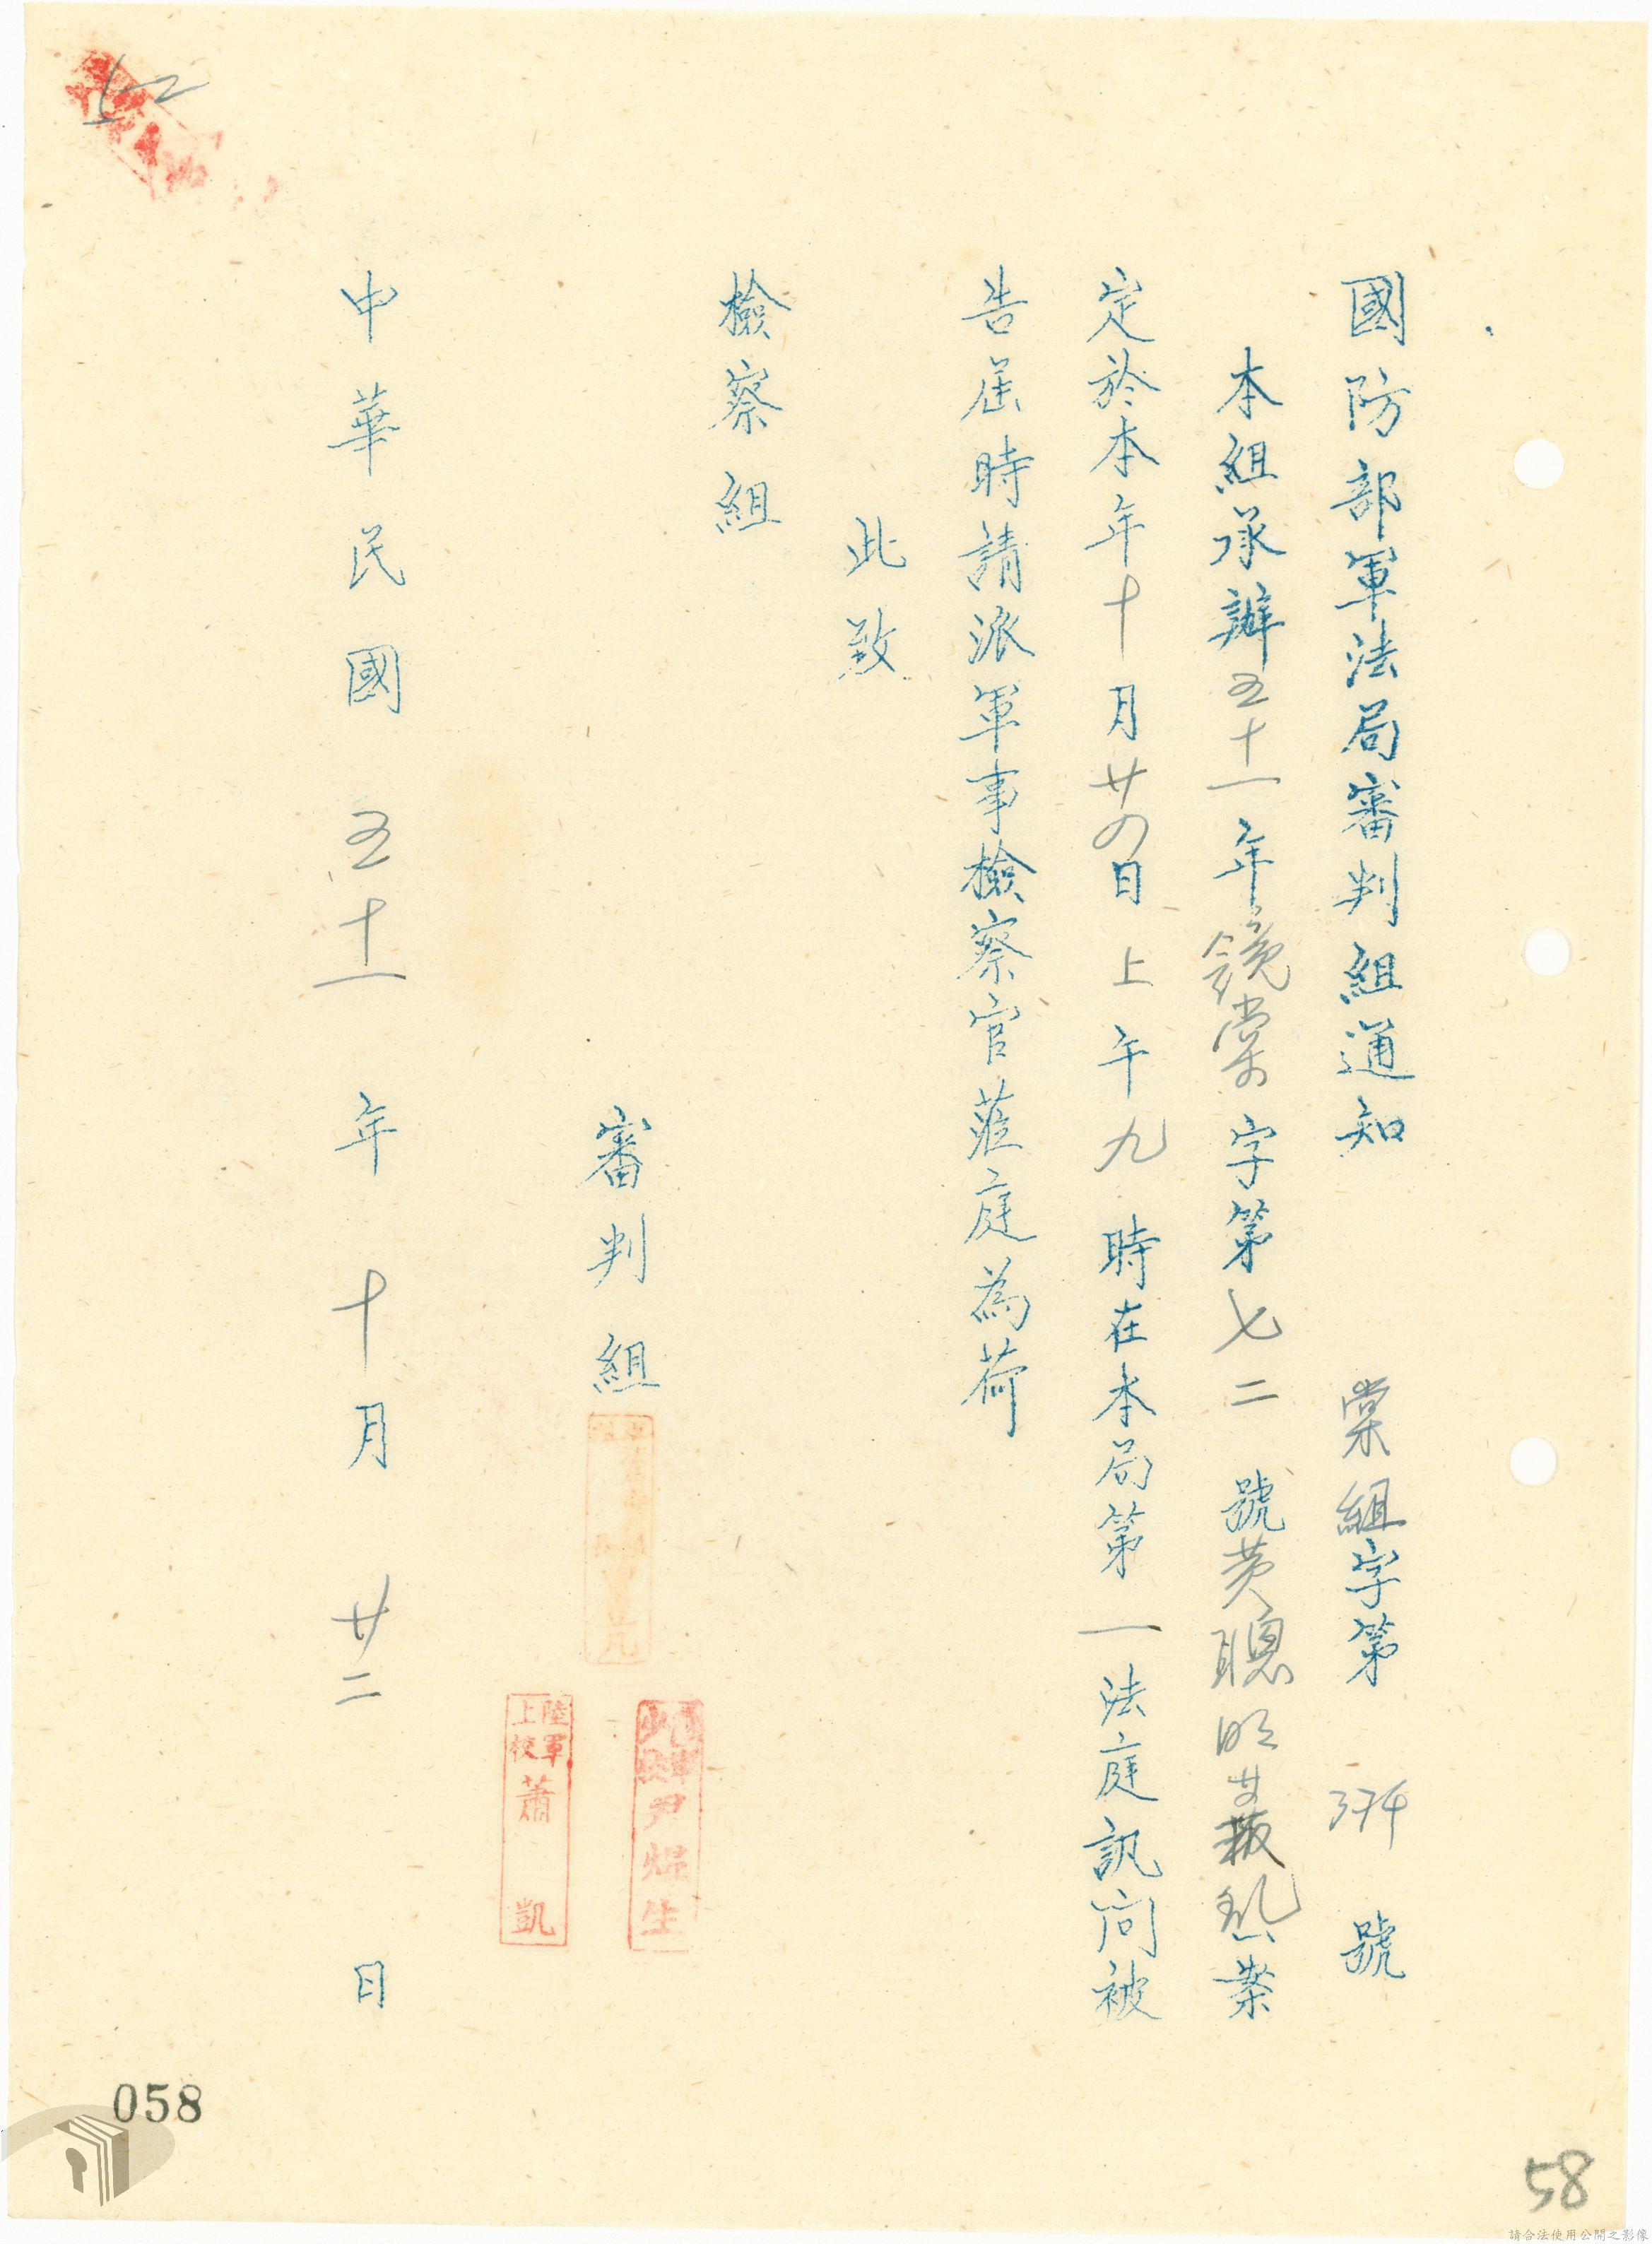 國防部軍法局審判組通知 棠組字第 374 號
本組承辦五十一年鏡棠字第七二號黃聰明等叛亂案
定於本年十月廿四日上午九時在本局第一法庭訊问被
告屆時請派軍事檢察官蒞庭為荷
此致
檢察組
審判組
尹焜生
陸軍上校 蕭凱
中華民國五十一年十月廿二日
52
058
58
請合法使用公開之影像